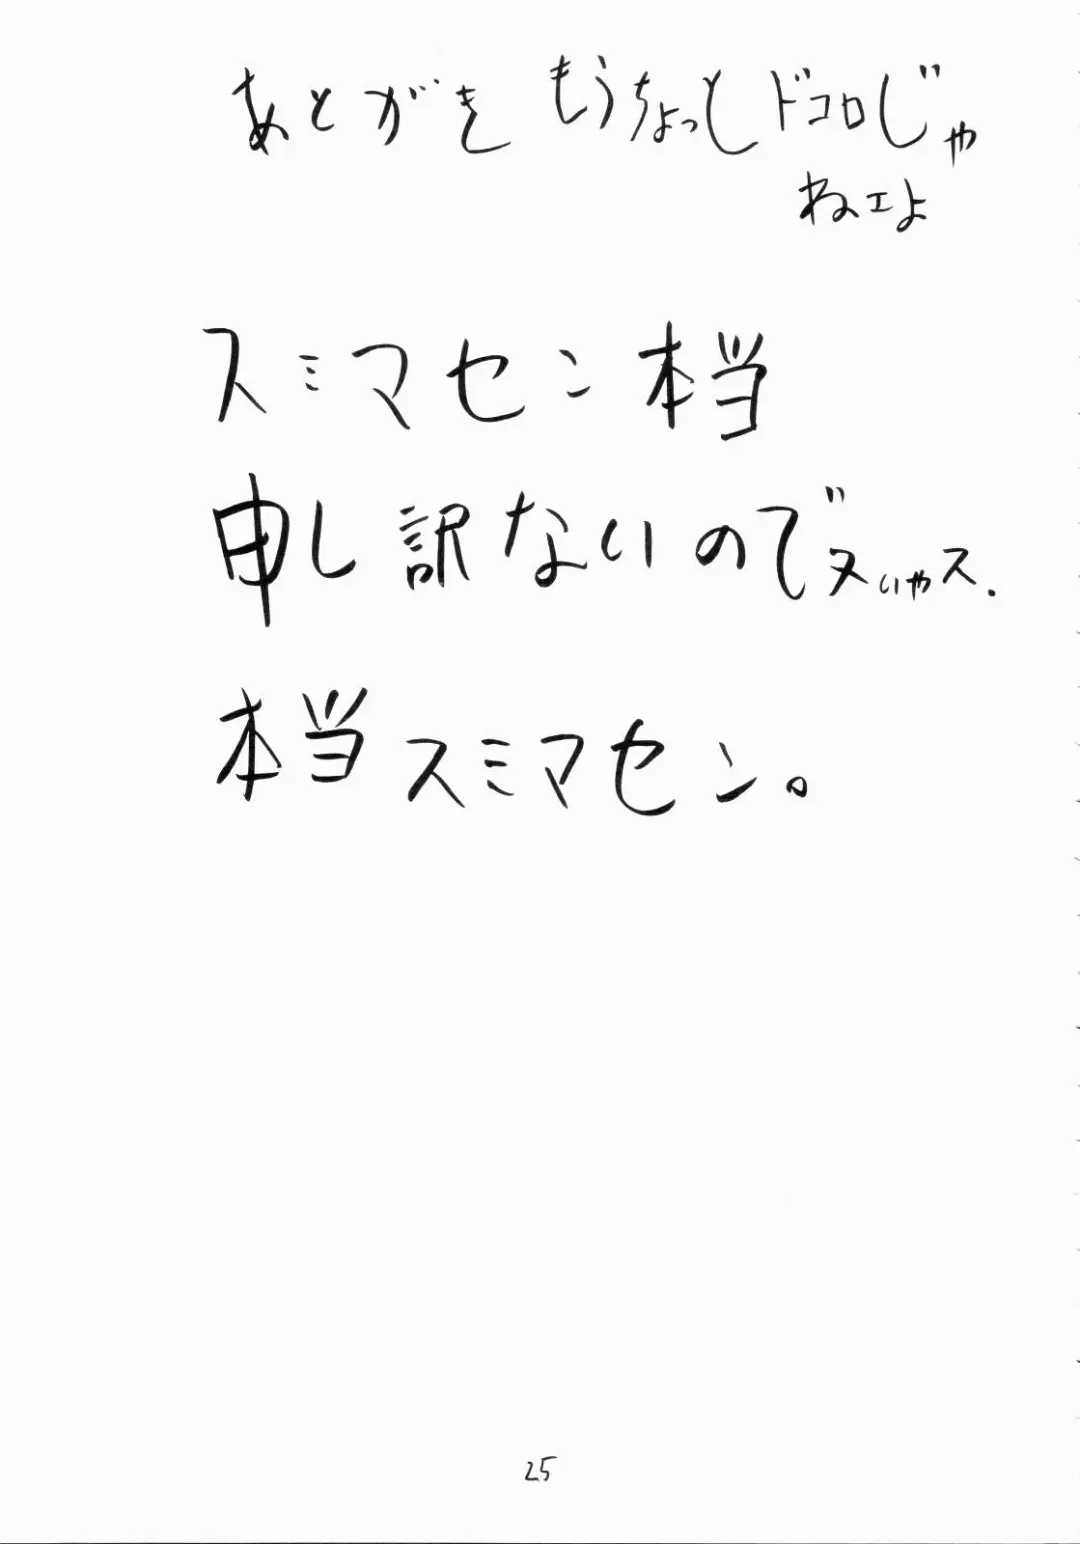 あとがき もうちょっとドコロじゃ
ねエよ
スミマセン本当
申し訳ないのでヌいやス.
本当スミマセン。
25